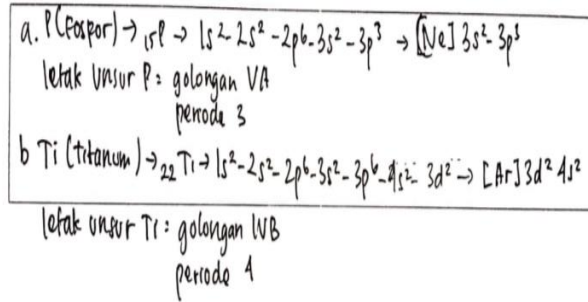 a. P (Fospor) → ₁₅P → 1s²-2s²-2p⁶-3s²-3p³ → [Ne] 3s²-3p³
letak unsur P : golongan VA
periode 3
b Ti (titanum) → ₂₂Ti → 1s²-2s²-2p⁶-3s²-3p⁶-4s²-3d² → [Ar] 3d² 4s²
letak unsur Ti : golongan IVB
periode 4